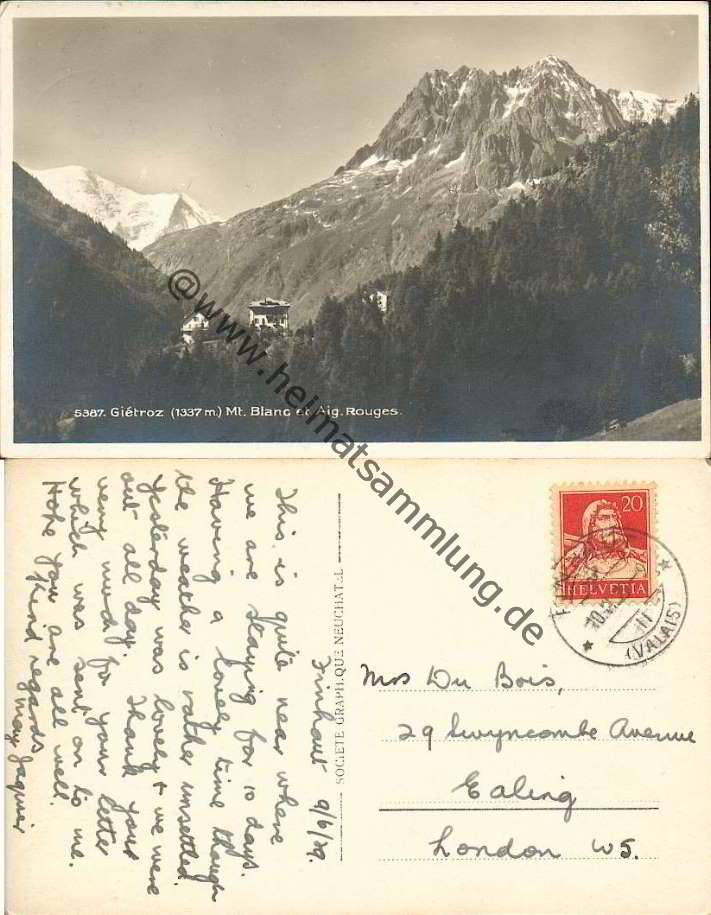 5387. Giétroz (1337 m.) Mt. Blanc et Aig. Rouges.
@www.heimatsammlung.de
Finhaut 9/6/29.
This is quite near where
we are staying for 10 days.
Having a lovely time though
the weather is rather unsettled.
Yesterday was lovely & we were
out all day. Thank you
very much for your letter
which was sent on to me.
Hope you are all well.
Kind regards
May Jaquier
SOCIÉTÉ GRAPHIQUE NEUCHATEL
20
HELVETIA
(VALAIS)
Mrs Du Bois,
29 Swyncombe Avenue
Ealing
London W5.